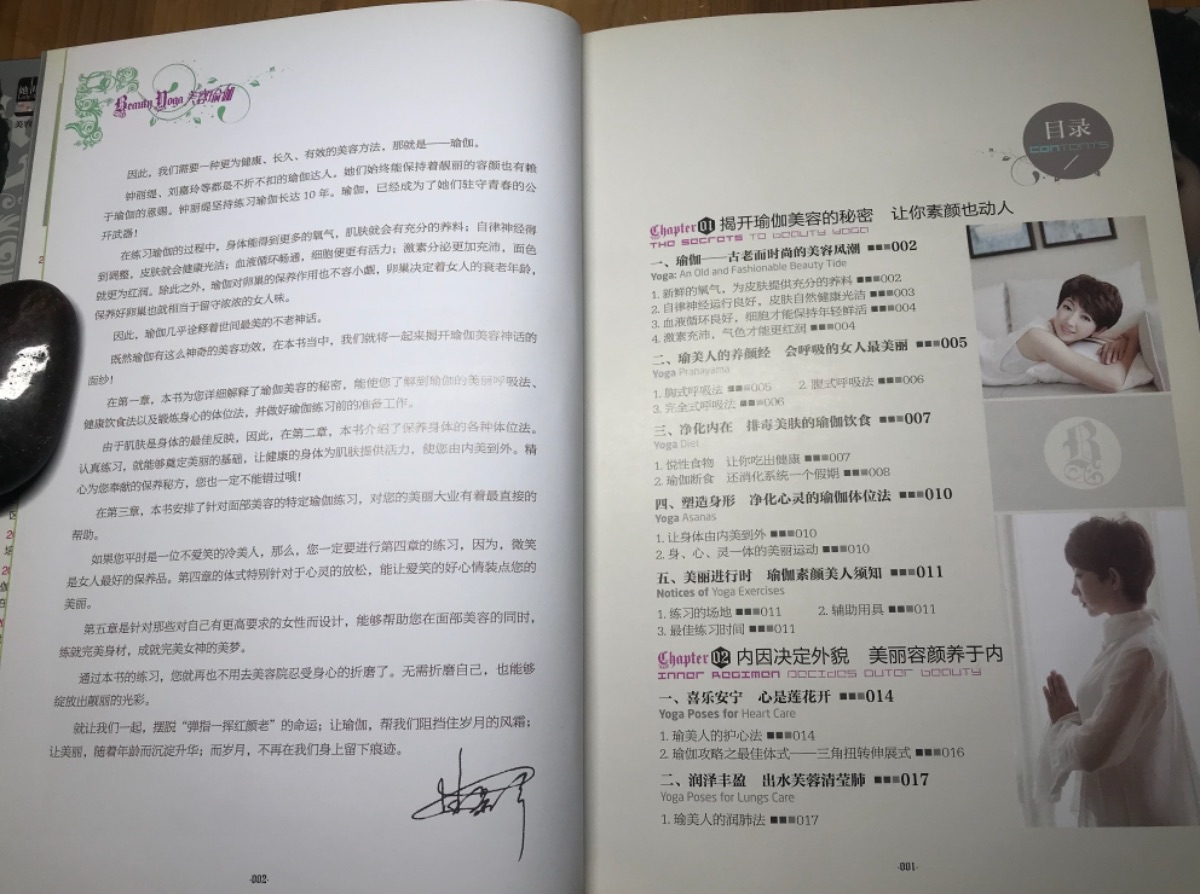 Beauty Yoga 美容瑜伽
因此，我们需要一种更为健康、长久、有效的美容方法，那就是——瑜伽。
钟丽缇、刘嘉玲等都是不折不扣的瑜伽达人。她们始终能保持着靓丽的容颜也有赖
于瑜伽的恩赐。钟丽缇坚持练习瑜伽长达 10 年。瑜伽，已经成为了她们驻守青春的公
开武器！
在练习瑜伽的过程中，身体能得到更多的氧气，肌肤就会有充分的养料；自律神经得
到调整，皮肤就会健康光洁；血液循环畅通，细胞便更有活力；激素分泌更加充沛，面色
就更为红润。除此之外，瑜伽对卵巢的保养作用也不容小觑，卵巢决定着女人的衰老年龄，
保养好卵巢也就相当于留守浓浓的女人味。
因此，瑜伽几乎诠释着世间最美的不老神话。
既然瑜伽有这么神奇的美容功效，在本书当中，我们就将一起来揭开瑜伽美容神话的
面纱！
在第一章，本书为您详细解释了瑜伽美容的秘密，能使您了解到瑜伽的美丽呼吸法、
健康饮食法以及锻炼身心的体位法，并做好瑜伽练习前的准备工作。
由于肌肤是身体的最佳反映，因此，在第二章，本书介绍了保养身体的各种体位法。
认真练习，就能够奠定美丽的基础，让健康的身体为肌肤提供活力，使您由内美到外。精
心为您奉献的保养秘方，您也一定不能错过哦！
在第三章，本书安排了针对面部美容的特定瑜伽练习，对您的美丽大业有着最直接的
帮助。
如果您平时是一位不爱笑的冷美人，那么，您一定要进行第四章的练习，因为，微笑
是女人最好的保养品。第四章的体式特别针对于心灵的放松，能让爱笑的好心情装点您的
美丽。
第五章是针对那些对自己有更高要求的女性而设计，能够帮助您在面部美容的同时，
练就完美身材，成就完美女神的美梦。
通过本书的练习，您就再也不用去美容院忍受身心的折磨了。无需折磨自己，也能够
绽放出靓丽的光彩。
就让我们一起，摆脱“弹指一挥红颜老”的命运；让瑜伽，帮我们阻挡住岁月的风霜；
让美丽，随着年龄而沉淀升华；而岁月，不再在我们身上留下痕迹。
·002·
目录
CONTENTS
Chapter 01 揭开瑜伽美容的秘密 让你素颜也动人
THE SECRETS TO BEAUTY YOGA
一、瑜伽——古老而时尚的美容风潮 ■■■002
Yoga: An Old and Fashionable Beauty Tide
1. 新鲜的氧气，为皮肤提供充分的养料 ■■■002
2. 自律神经运行良好，皮肤自然健康光洁 ■■■003
3. 血液循环良好，细胞才能保持年轻鲜活 ■■■004
4. 激素充沛，气色才能更红润 ■■■004
二、瑜美人的养颜经 会呼吸的女人最美丽 ■■■005
Yoga Pranayama
1. 胸式呼吸法 ■■■005 2. 腹式呼吸法 ■■■006
3. 完全式呼吸法 ■■■006
三、净化内在 排毒美肤的瑜伽饮食 ■■■007
Yoga Diet
1. 悦性食物 让你吃出健康 ■■■007
2. 瑜伽断食 还消化系统一个假期 ■■■008
四、塑造身形 净化心灵的瑜伽体位法 ■■■010
Yoga Asanas
1. 让身体由内美到外 ■■■010
2. 身、心、灵一体的美丽运动 ■■■010
五、美丽进行时 瑜伽素颜美人须知 ■■■011
Notices of Yoga Exercises
1. 练习的场地 ■■■011 2. 辅助用具 ■■■011
3. 最佳练习时间 ■■■011
Chapter 02 内因决定外貌 美丽容颜养于内
INNER REGIMEN DECIDES OUTER BEAUTY
一、喜乐安宁 心是莲花开 ■■■014
Yoga Poses for Heart Care
1. 瑜美人的护心法 ■■■014
2. 瑜伽攻略之最佳体式——三角扭转伸展式 ■■■016
二、润泽丰盈 出水芙蓉清莹肺 ■■■017
Yoga Poses for Lungs Care
1. 瑜美人的润肺法 ■■■017
·001·